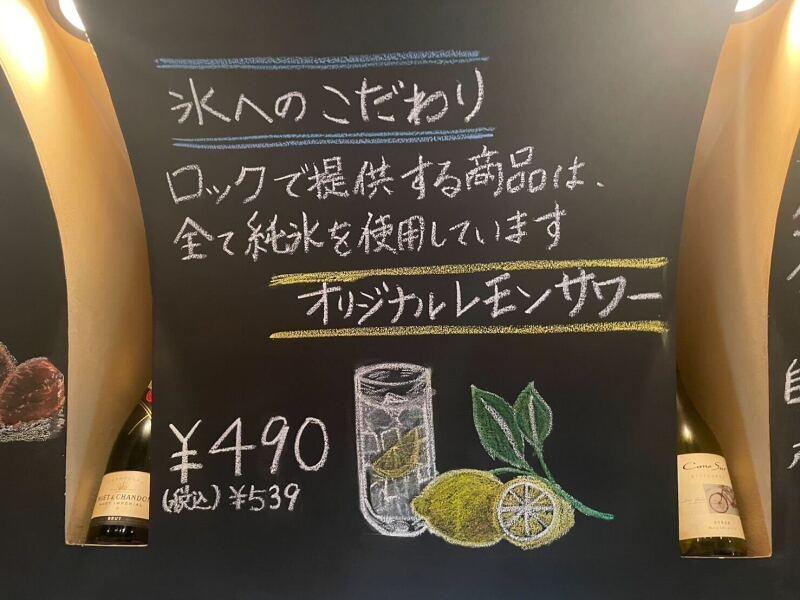 氷へのこだわり
ロックで提供する商品は、
全て純氷を使用しています
オリジナルレモンサワー
¥490
(税込)¥539
MOËT & CHANDON
BRUT
Cono Sur